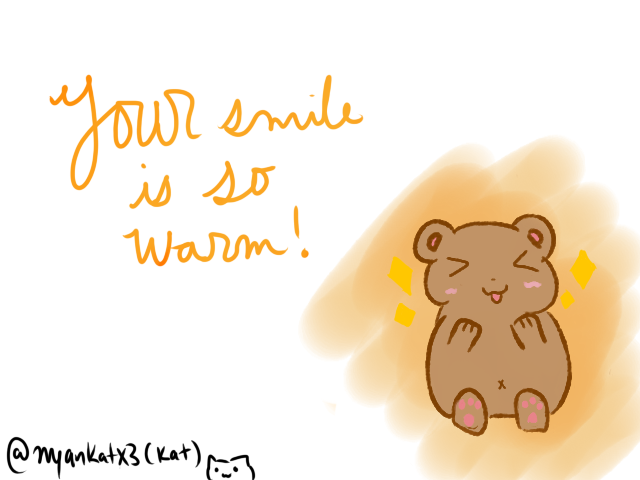 Your smile
is so
warm!
@nyankatx3(kat)